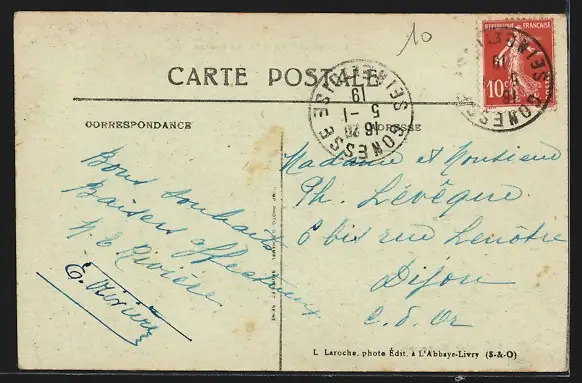 10
RÉPUBLIQUE FRANÇAISE
10
CARTE POSTALE
GONESSE SEINE-ET-OISE
16 20
5 - 1
19
CORRESPONDANCE
ADRESSE
Bons souhaits
Baisers affectueux
N E Rivière
E. Rivière
Madame et Monsieur
Ph. Lévêque
6 bis rue Lenôtre
Dijon
C. d'Or
L. Laroche, photo Édit. à L'Abbaye-Livry (S-&-O)